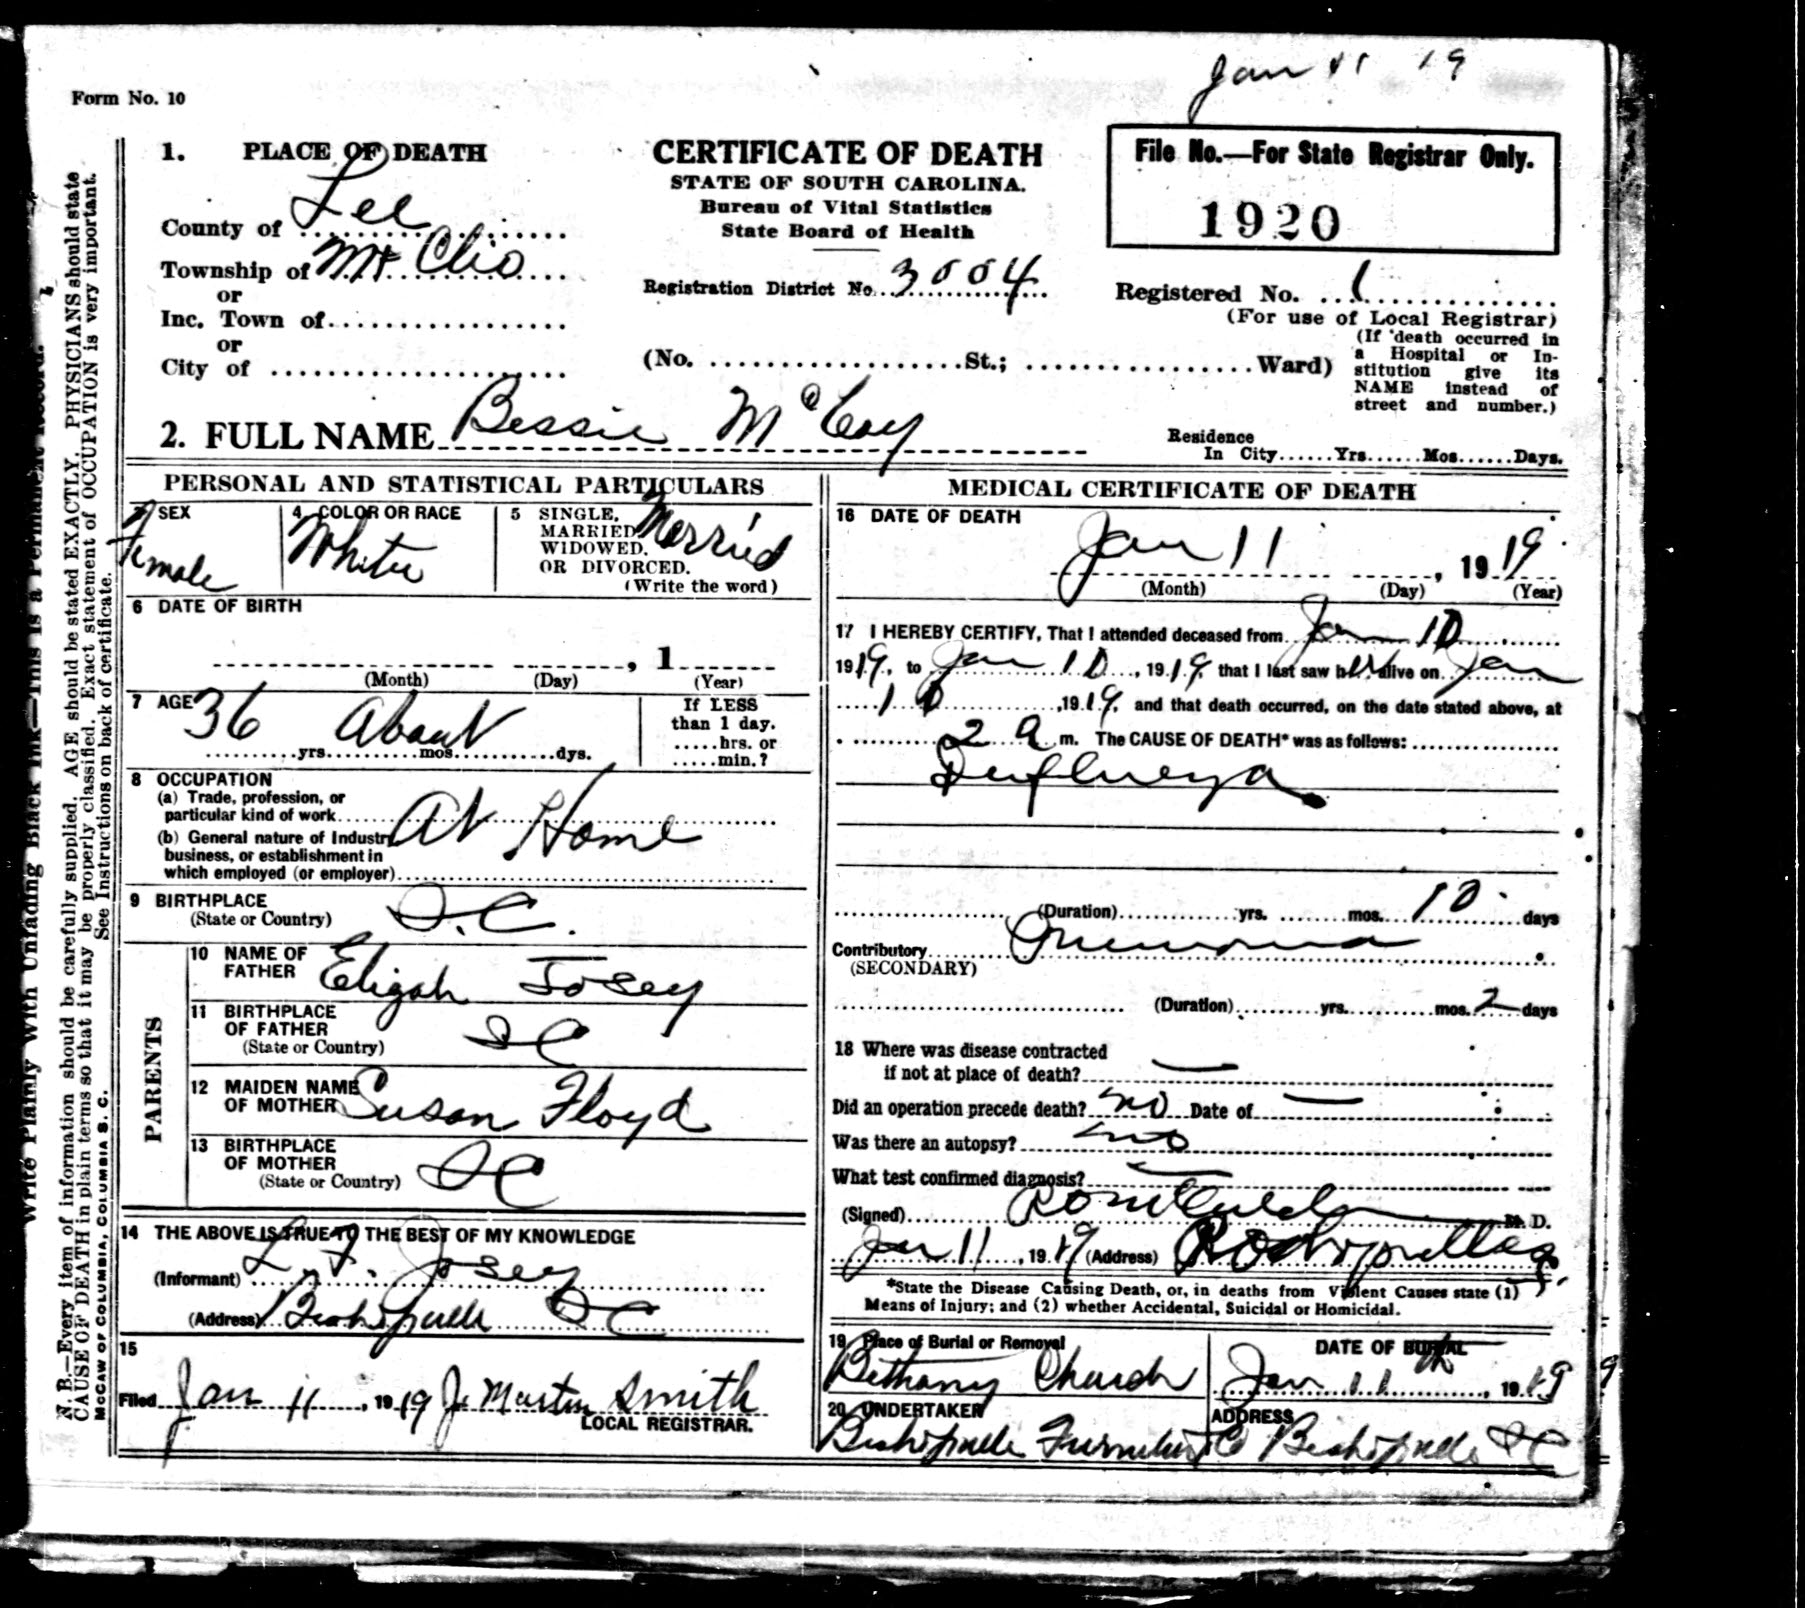 Jan 11 19
Form No. 10
1. PLACE OF DEATH
County of Lee
Township of Mt Clio
or
Inc. Town of
or
City of
CERTIFICATE OF DEATH
STATE OF SOUTH CAROLINA.
Bureau of Vital Statistics
State Board of Health
Registration District No. 3004
(No. St.; Ward)
File No.—For State Registrar Only.
1920
Registered No. 1
(For use of Local Registrar)
(If death occurred in
a Hospital or In-
stitution give its
NAME instead of
street and number.)
2. FULL NAME Bessie McCoy
Residence
In City......Yrs......Mos......Days.
PERSONAL AND STATISTICAL PARTICULARS
3 SEX
Female
4 COLOR OR RACE
White
5 SINGLE,
MARRIED,
WIDOWED,
OR DIVORCED.
(Write the word)
Married
6 DATE OF BIRTH
, 1
(Month) (Day) (Year)
7 AGE
36 About
yrs. mos. dys.
If LESS
than 1 day.
.....hrs. or
.....min.?
8 OCCUPATION
(a) Trade, profession, or
particular kind of work
(b) General nature of Industry
business, or establishment in
which employed (or employer)
At Home
9 BIRTHPLACE
(State or Country)
S.C.
PARENTS
10 NAME OF
FATHER
Eligah Josey
11 BIRTHPLACE
OF FATHER
(State or Country)
SC
12 MAIDEN NAME
OF MOTHER
Susan Floyd
13 BIRTHPLACE
OF MOTHER
(State or Country)
SC
14 THE ABOVE IS TRUE TO THE BEST OF MY KNOWLEDGE
(Informant) L. F. Josey
(Address) Bishopville SC
15
Filed Jan 11, 1919 J. Martin Smith
LOCAL REGISTRAR.
MEDICAL CERTIFICATE OF DEATH
16 DATE OF DEATH
Jan 11, 1919
(Month) (Day) (Year)
17 I HEREBY CERTIFY, That I attended deceased from Jan 10
1919, to Jan 10, 1919, that I last saw her alive on Jan
10, 1919, and that death occurred, on the date stated above, at
2 a m. The CAUSE OF DEATH* was as follows:
Influenza
(Duration) yrs. mos. 10 days
Contributory Pneumonia
(SECONDARY)
(Duration) yrs. mos. 2 days
18 Where was disease contracted
if not at place of death? —
Did an operation precede death? no Date of —
Was there an autopsy? no
What test confirmed diagnosis? —
(Signed) M. D.
Jan 11, 1919 (Address)
*State the Disease Causing Death, or, in deaths from Violent Causes state (1)
Means of Injury; and (2) whether Accidental, Suicidal or Homicidal.
19 Place of Burial or Removal
Bethany Church
DATE OF BURIAL
Jan 11th, 1919
20 UNDERTAKER
Bishopville Furniture Co
ADDRESS
Bishopville SC
Write Plainly With Unfading Black Ink—This is a Permanent Record.
N. B.—Every item of information should be carefully supplied. AGE should be stated EXACTLY. PHYSICIANS should state
CAUSE OF DEATH in plain terms so that it may be properly classified. Exact statement of OCCUPATION is very important.
See Instructions on back of certificate.
McCAW OF COLUMBIA, COLUMBIA S. C.